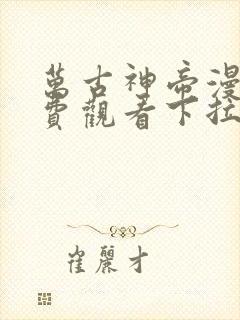 萬古神帝漫
費觀看下拉
崔麗才